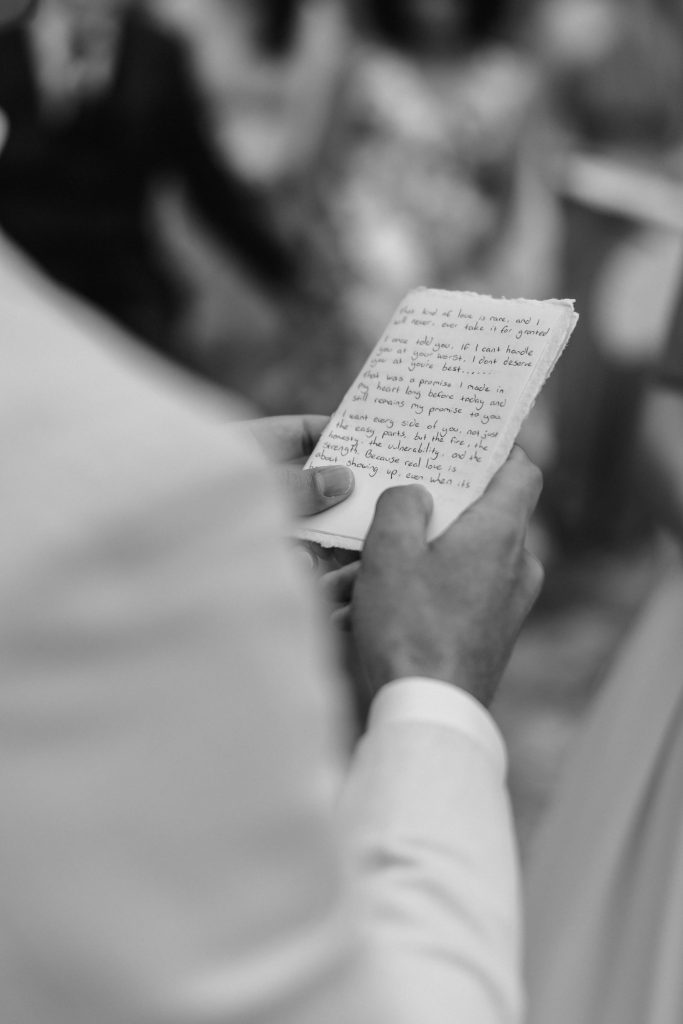 that kind of love is rare, and I
will never, ever take it for granted
I once told you, If I cant handle
you at your worst, I dont deserve
you at you're best......
that was a promise I made in
my heart long before today and
still remains my promise to you.
I want every side of you, not just
the easy parts, but the fire, the
honesty, the vulnerability, and the
strength. Because real love is
about showing up, even when it's